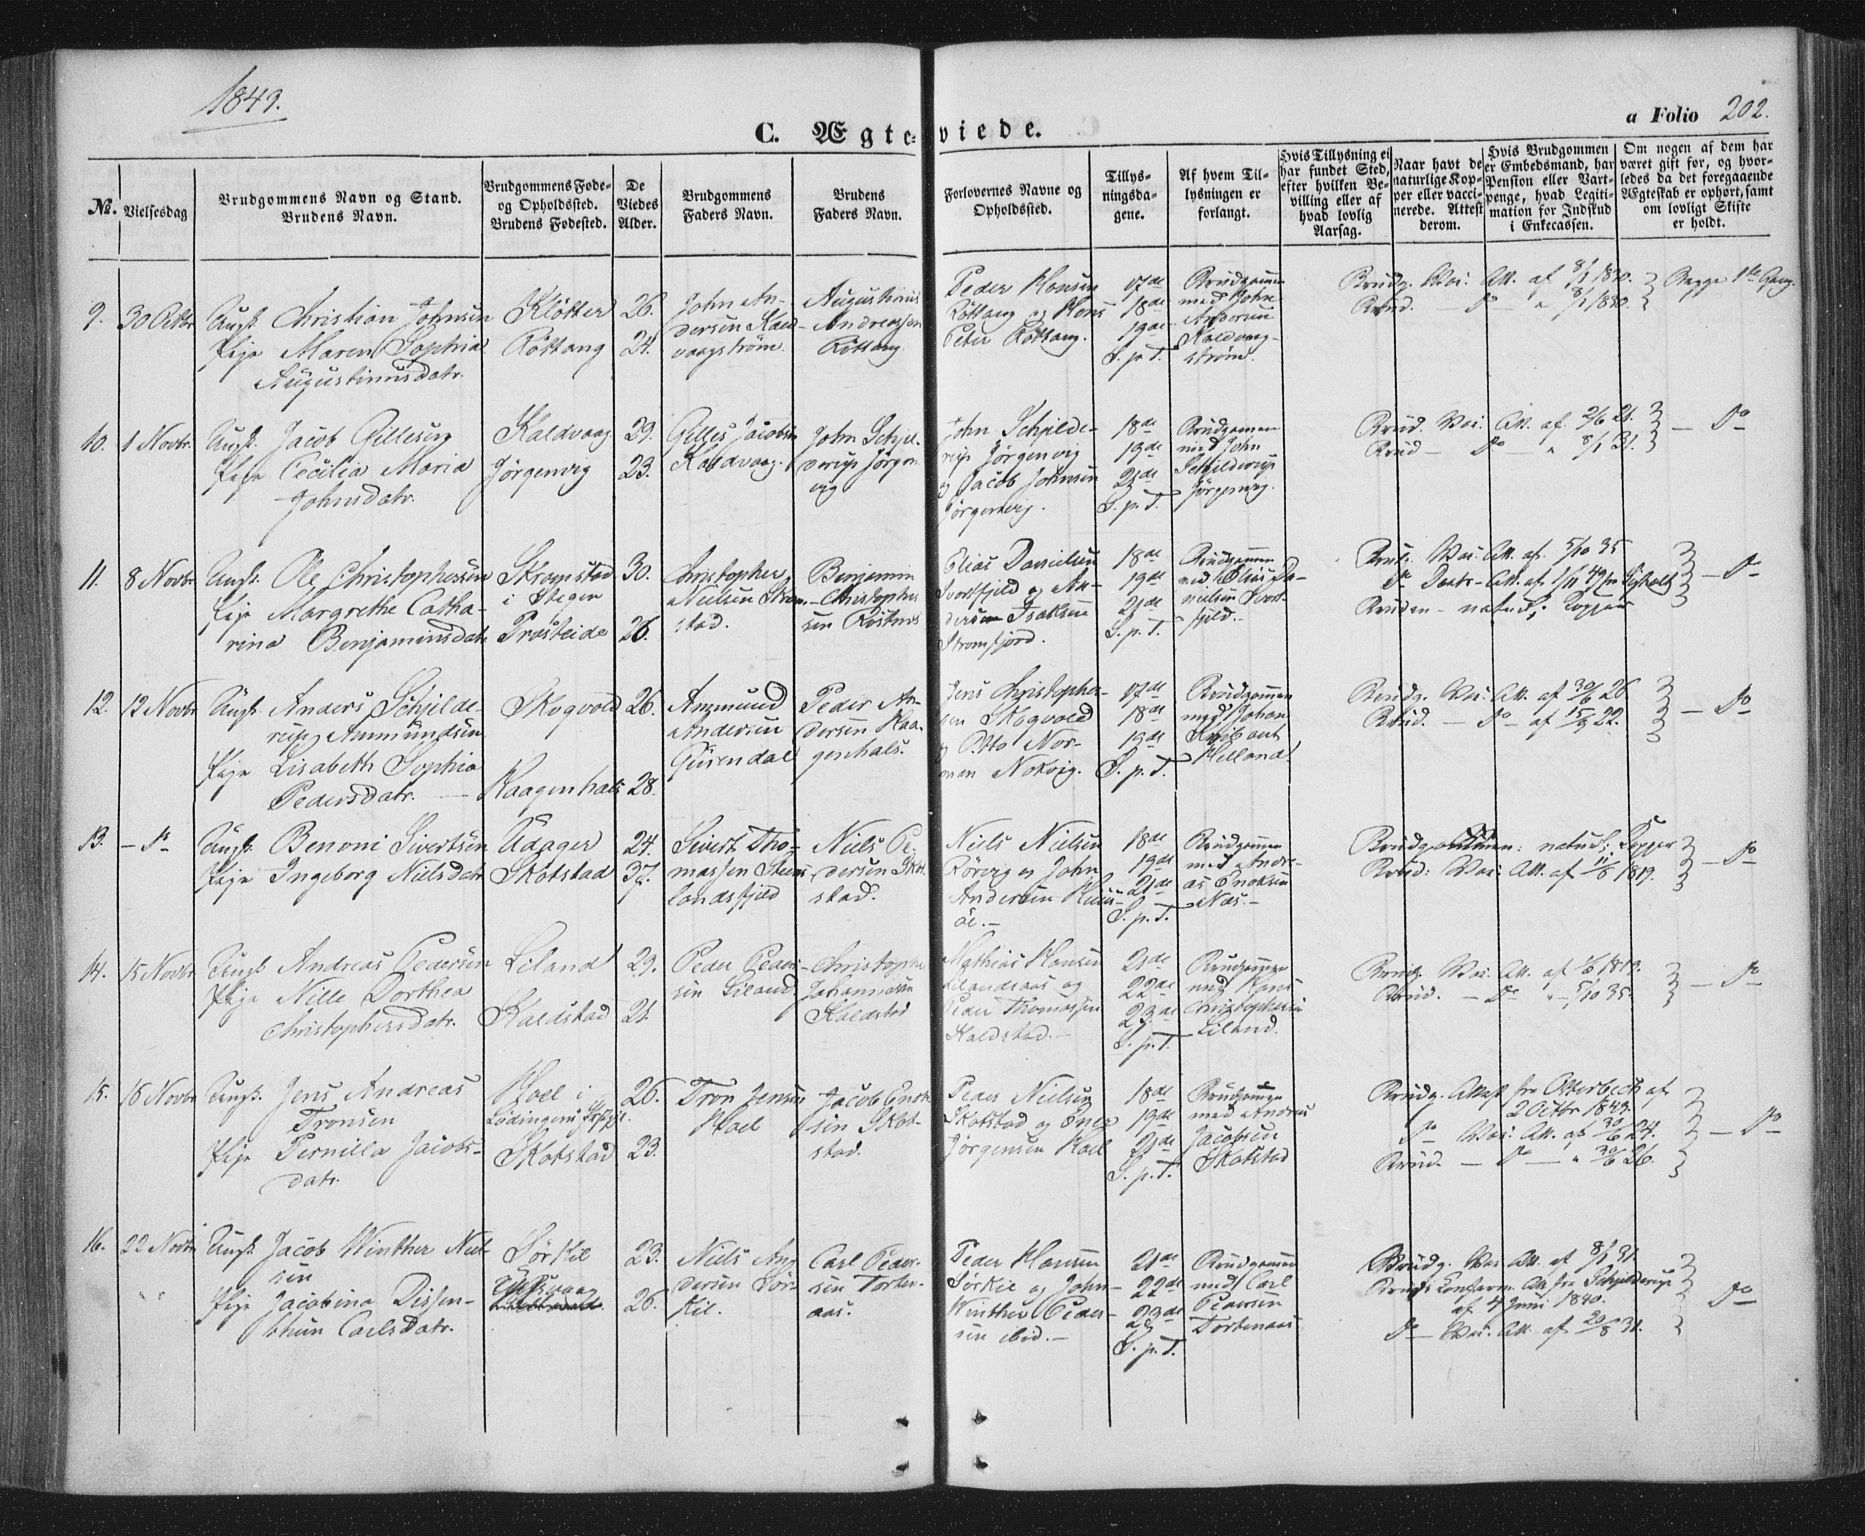 1849.
C. Ægteviede.
a Folio 202.
No.
Vielsesdag
Brudgommens Navn og Stand.
Brudens Navn.
Brudgommens Føde-
og Opholdssted.
Brudens Fødested.
De
Viedes
Alder.
Brudgommens
Faders Navn.
Brudens
Faders Navn.
Forlovernes Navne og
Opholdssted.
Tillys-
ningsda-
gene.
Af hvem Til-
lysningen er
forlangt.
Hvis Tillysning ei
har fundet Sted,
efter hvilken Be-
villing eller af
hvad lovlig
Aarsag.
Naar havt de
naturlige Kop-
per eller vacci-
nerede. Attest
derom.
Hvis Brudgommen
er Embedsmand, har
Pension eller Vart-
penge, hvad Legiti-
mation for Indskud
i Enkecassen.
Om nogen af dem har
været gift før, og hvor-
ledes da det foregaaende
Ægteskab er ophørt, samt
om lovligt Skifte
er holdt.
9. 30 Octbr Ungk. Christian Johnsen
Pige Maren Sophia
Augustinusdatr.
Klötter
Röttang
26.
24.
John An-
dersen Kald-
vaagstrøm.
Augustinus
Andreassen
Röttang
Peder Hansen
Röttang og Hans
Peter Röttang.
17de
18de
19de
S. p. T.
Brudgommen
med John
Andersen
Kaldvaag-
strøm.
Brudg. Vac. Att. af 8/1 1830.
Brud. — Do " 8/1 1830.
Begge 1ste Gang.
10. 1 Novbr. Ungk. Jacob Gillesen
Pige Cecilia Maria
Johnsdatr.
Kaldvaag
Jörgenvig
29.
23.
Gilles Jacobsen
Kaldvaag.
John Schjel-
derup Jörgen-
vig
John Schjelde-
rup Jörgenvig
og Jacob Johnsen
Jörgenvig.
18de
19de
21de
S. p. T.
Brudgommen
med John
Schjelderup
Jörgenvig.
Brud. Vac. Att. af 2/6 21.
Brud — Do — " 8/1 31.
— Do
11. 8 Novbr Ungk. Ole Christophersen
Pige Margrethe Catha-
rina Benjaminsdatr
Skromstad
i Stegen
Prösteide
30.
26.
Christopher
Nielsen Skrom-
stad.
Benjamin
Christopher-
sen Röstnes
Elias Danielsen
Svortfjeld og An-
dersen Isaksen
Stromfjord.
18de
19de
21de
S. p. T.
Brudgommen
med Elias Da-
nielsen Svort-
fjeld.
Brudg. Vac. Att. af 5/10 35
Bruden — naturl. Kopper
— Do
12. 12 Novbr Ungk. Anders Schjelde-
rup Ammundsen
Pige Lisabeth Sophia
Pedersdatr. —
Skogvold
Kaagenhals
26.
28.
Ammund
Andersen
Gusendal
Peder An-
dersen Kaa-
genhals.
Jens Christopher-
sen Skogvold
og Otto Nor-
man Nokvig.
17de
18de
19de
S. p. T.
Brudgommen
med Johan
Hilland
Brudg. Vac. Att. af 30/6 26
Brud. — Do — af 15/9 22.
— Do
13. — Do Ungk. Benoni Sivertsen
Pige Ingeborg Nielsdatr
Udager
Skotstad
24.
37.
Sivert Tho-
massen Steens-
landsfjeld
Niels Pe-
dersen Skot-
stad.
Niels Nielsen
Rörvig og John
Andersen Huus-
öe. —
18de
19de
21de
S. p. T.
Brudgommen
med Andre-
as Enoksen
Næs. —
Brudgommen: naturl. Kopper
Brud: Vac: Att. af 11/6 1819.
— Do
14. 15 Novbr Ungk. Andreas Pedersen
Pige Nille Dorthea
Christophersdatr.
Liland
Kaldstad
29.
21.
Peder Peder-
sen Liland
Christopher
Johannesen
Kaldstad
Mathias Hansen
Lilandsaas og
Peder Thomassen
Kaldstad. —
21de
22de
23de
S. p. T.
Brudgommen
med Hans
Christophersen
Liland.
Brudg. Vac. Att. af 1/6 1819.
Brud. — Do " 5/10 35.
— Do
15. 16 Novbr Ungk. Jens Andreas
Tronsen
Pige Pernilla Jacobs-
datr.
Hoel i
Lödingens Præstegj.
Skotstad
26.
23.
Tron Jensen
Hoel
Jacob Enok-
sen Skot-
stad.
Peder Nielsen
Skotstad og Enok
Jörgensen Hoel
18de
19de
21de
S. p. T.
Brudgommen
med Andreas
Jacobsen
Skotstad
Brudg. Attest fra Otterbech af
2 Octbr 1849.
Do Vac. Att. af 30/6 24.
Brud. — Do — " 30/6 26.
— Do
16. 22 Novbr Ungk. Jacob Winther Niel-
sen
Pige Jacobina Dissen-
thun Carlsdatr.
Sörkil
23.
26.
Niels An-
dersen Sör-
kil.
Carl Peder-
sen Torten-
aas.
Peder Hansen
Sörkil og John
Winther Peder-
sen ibid. —
21de
22de
23de
S. p. T.
Brudgommen
med Carl
Pedersen
Tortenaas
Brudg. Vac. Att. af 8/1 31.
Brudg. Confirm. Att. fra Schjelderup
af 4 Juni 1840.
Do — Vac. Att. af 20/8 31.
Do